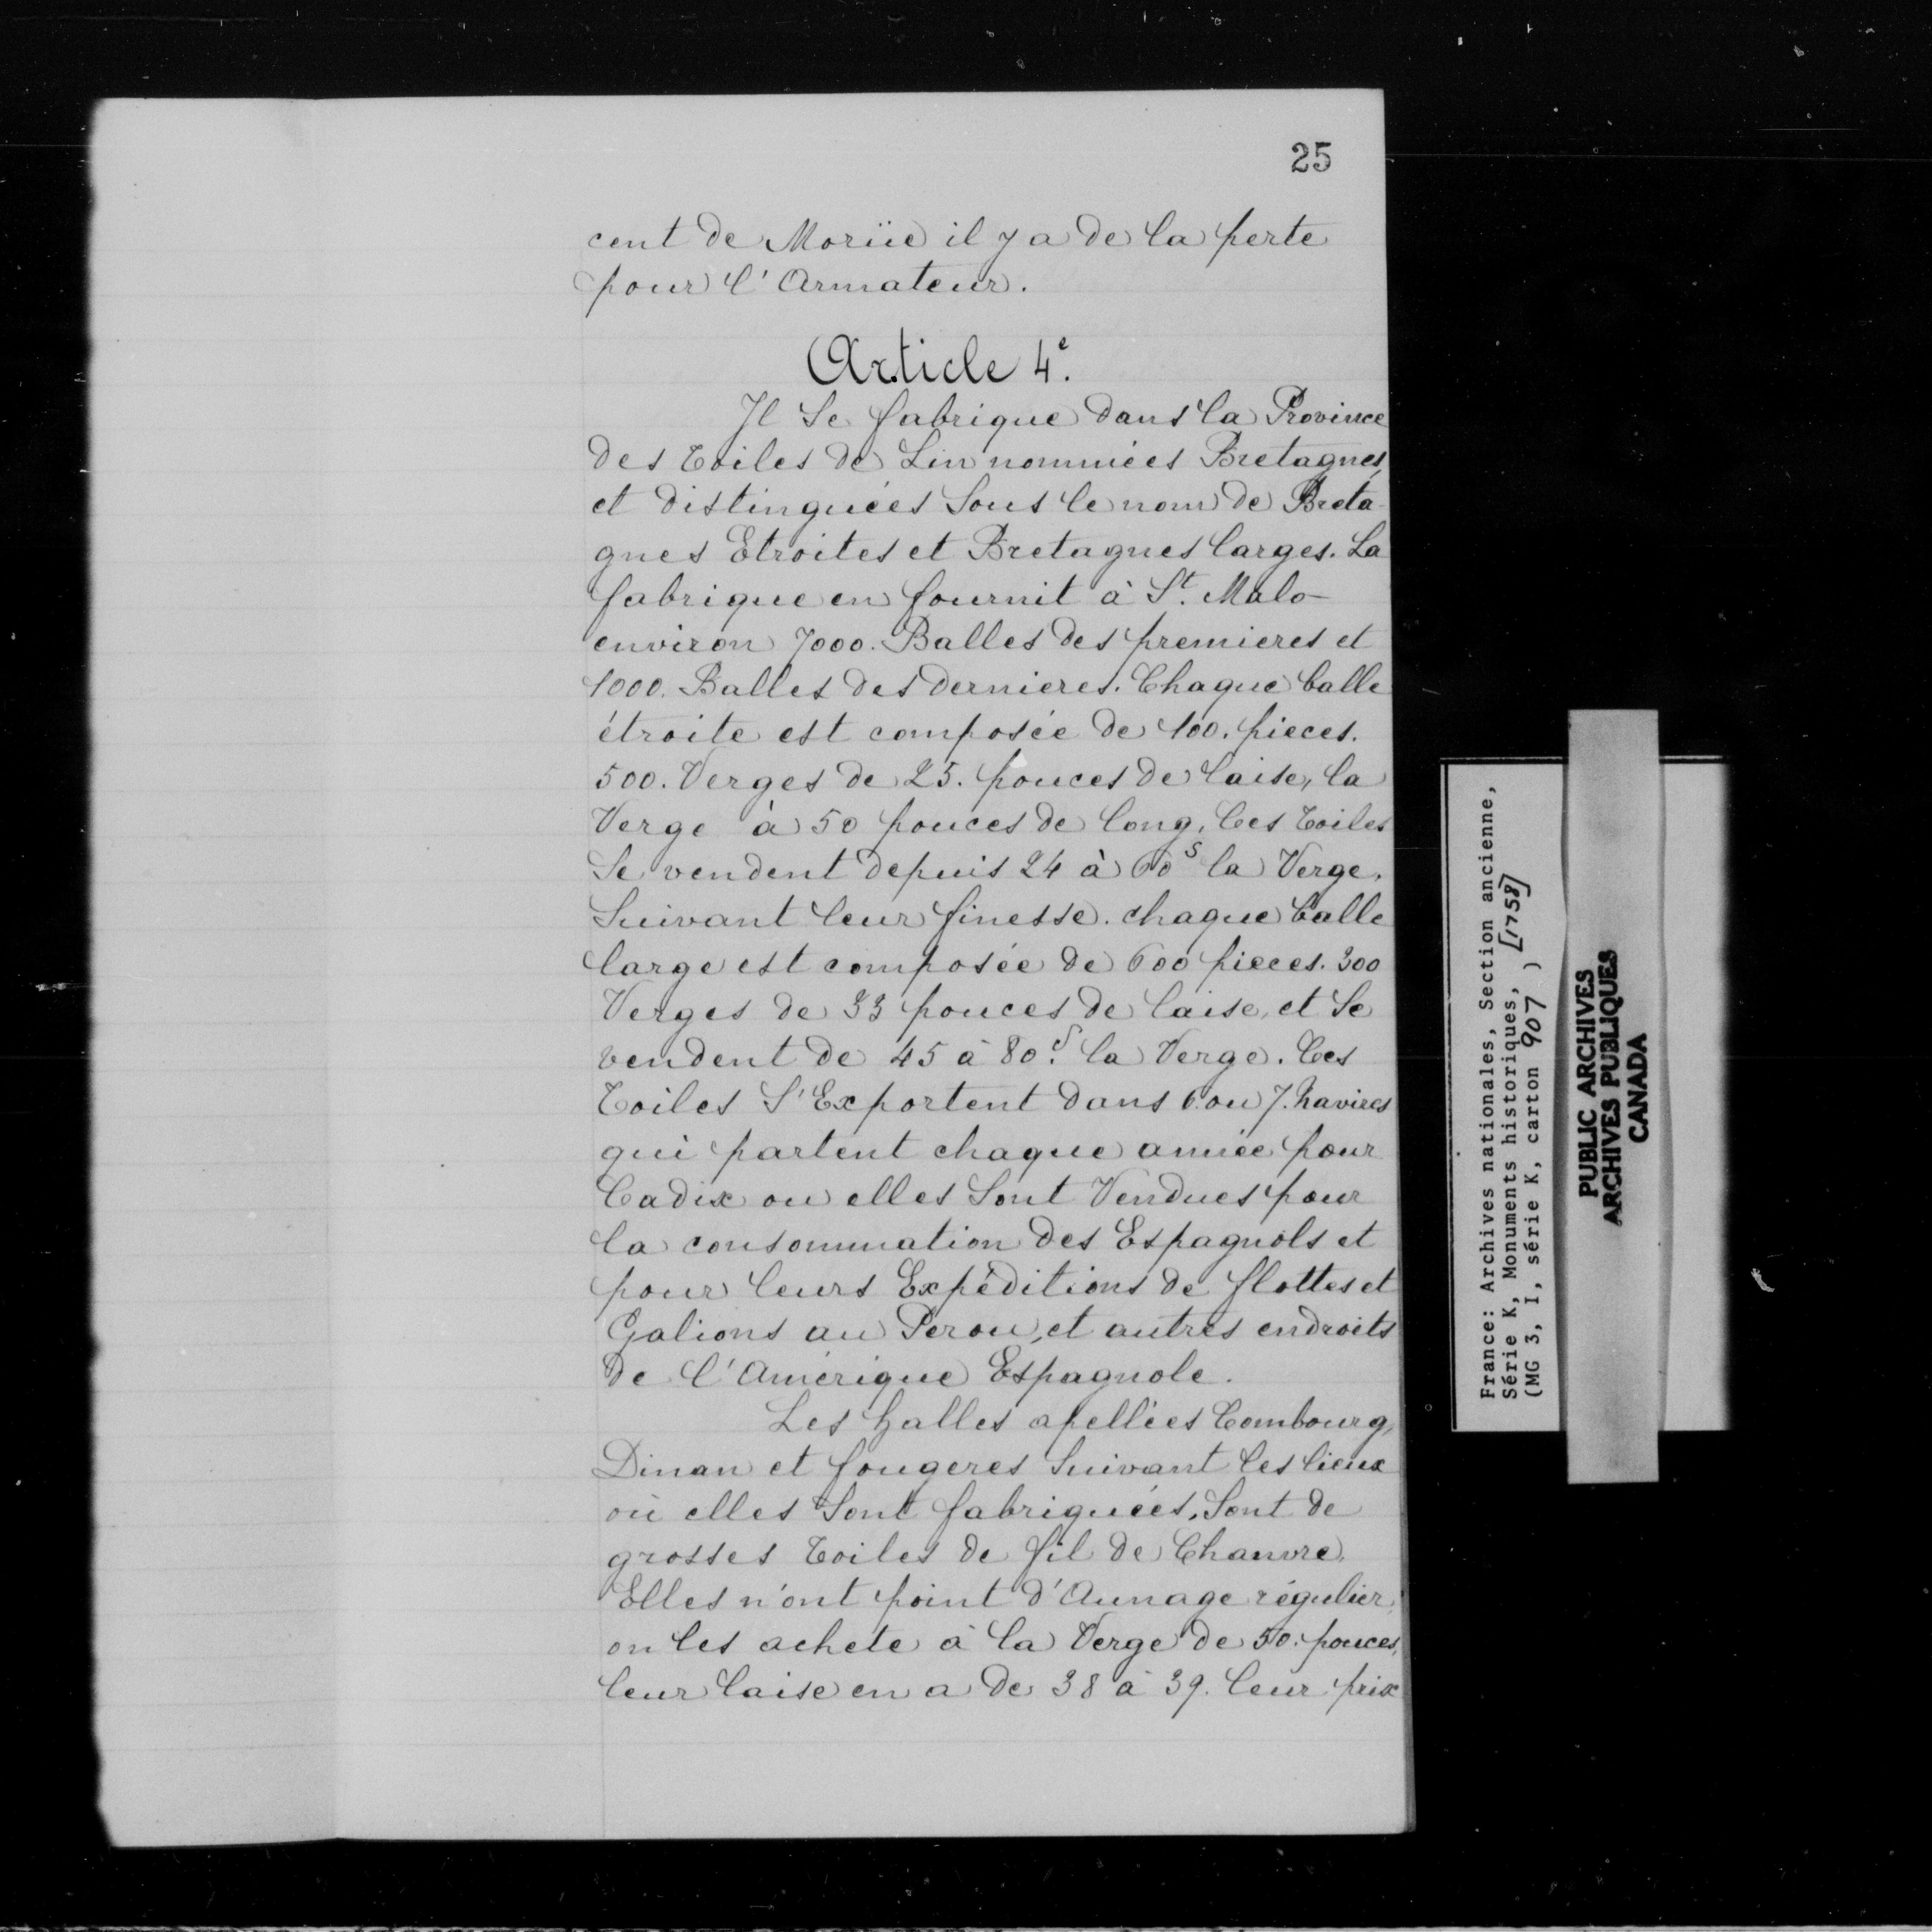 25
cent de Moriie il y a de la perte
pour l'Armateur.
Article 4e.
Il Se fabrique dans la Province
des Toiles de Lin nommées Bretagnes,
et distinguées Sous le nom de Breta-
gnes Etroites et Bretagnes larges. La
fabrique en fournit à St. Malo-
environ 7000. Balles des premieres et
1000. Balles des dernieres. Chaque balle
étroite est composée de 100. pieces.
500. Verges de 25. pouces de laise, la
Verge à 50 pouces de long. Ces Toiles
Se vendent depuis 24 à 60s la Verge.
Suivant leur finesse. chaque balle
large est composée de 600 pieces. 300
Verges de 33 pouces de laise, et Se
vendent de 45 à 80.s la Verge. Ces
Toiles S'Exportent dans 6. ou 7. navires
qui partent chaque année pour
Cadix ou elles Sont Vendues pour
la consommation des Espagnols et
pour leurs Expéditions de flottes et
Galions au Perou, et autres endroits
de l'Amérique Espagnole.
Les halles apellées Combourg,
Dinan et fougeres Suivant les lieux
où elles Sont fabriquées, Sont de
grosses Toiles de fil de Chanvre.
Elles n'ont point d'Aunage régulier;
on les achete à la Verge de 50. pouces,
leur laise en a de 38 à 39. leur prix
France: Archives nationales, Section ancienne,
Série K, Monuments historiques, [1758]
(MG 3, I, série K, carton 907 )
PUBLIC ARCHIVES
ARCHIVES PUBLIQUES
CANADA